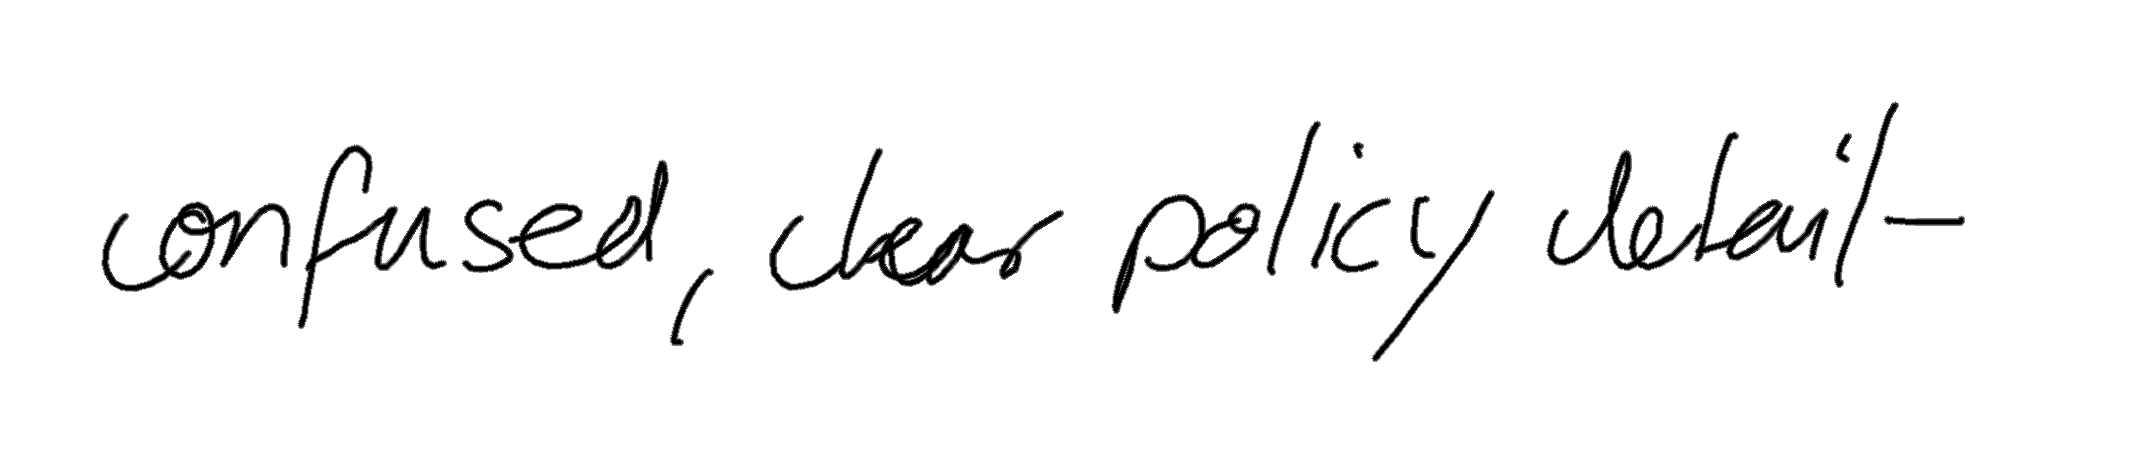 confused, clear policy detail-